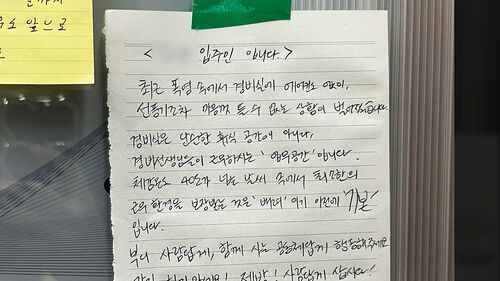 앞으로
< 입주민 입니다. >
최근 폭염 속에서 경비실에 에어컨도 없이,
선풍기조차 마음껏 틀 수 없는 상황이 벌어졌습니다.
경비실은 단순한 휴식 공간이 아니라,
경비선생님들이 근무하시는 '업무공간' 입니다.
체감온도 40도가 넘는 날씨 속에서 최소한의
근무 환경을 보장받는 것은 '배려' 이기 이전에 '기본'
입니다.
부디 사람답게, 함께 사는 공동체답게 행동해주세요
제발! 사람답게 삽시다!